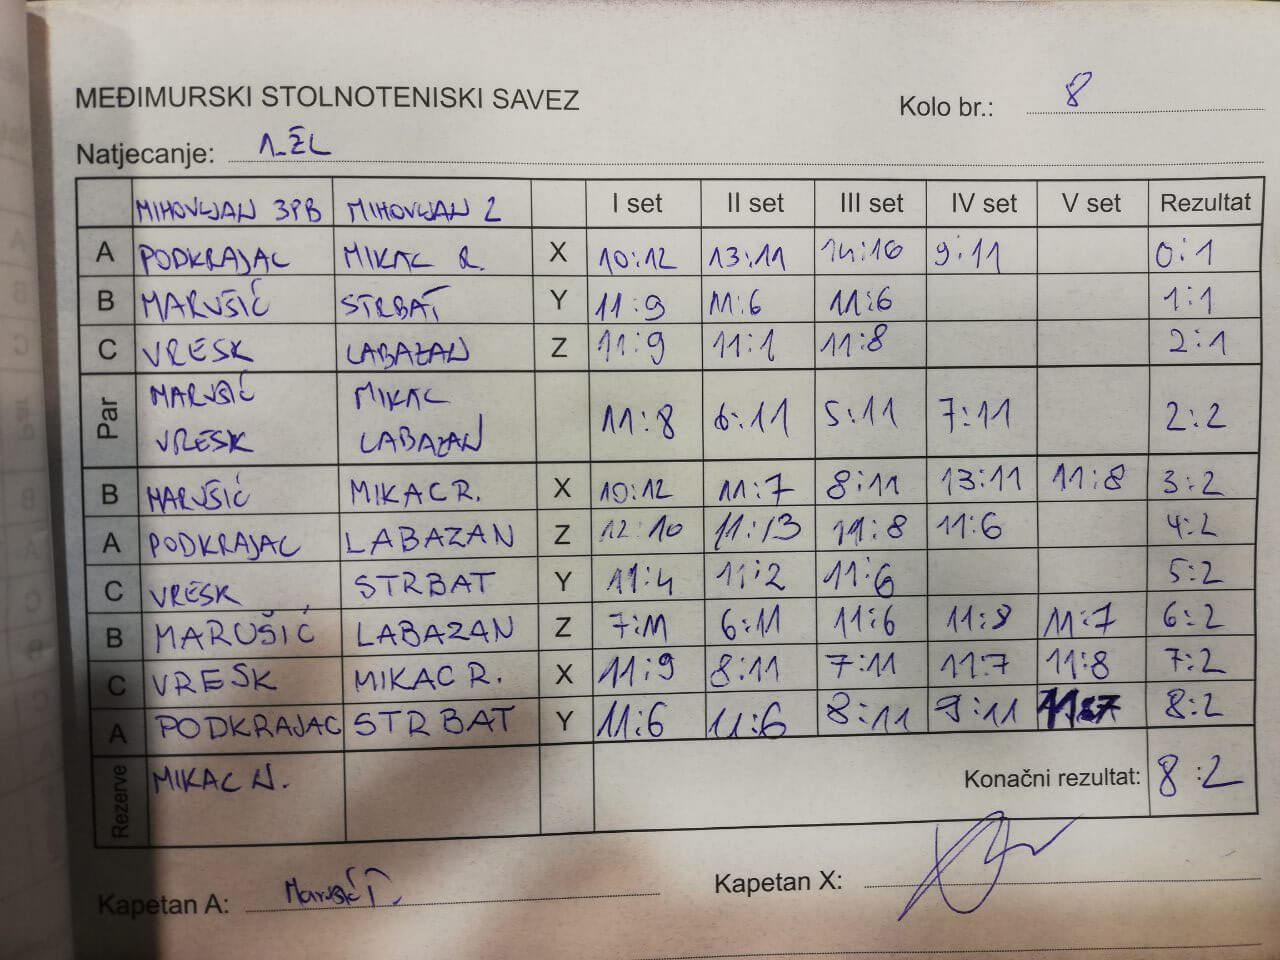 MEĐIMURSKI STOLNOTENISKI SAVEZ
Kolo br.: 8
Natjecanje: 1. ŽL
MIHOVLJAN 3PB MIHOVLJAN 2 I set II set III set IV set V set Rezultat
A PODKRAJAC MIKAC R. X 10:12 13:11 9:11 0:1
B MARUŠIĆ STRBAT Y 11:9 11:6 11:6 1:1
C VRESK LABAZAN Z 11:9 11:1 11:8 2:1
Par MARUŠIĆ MIKAC
VRESK LABAZAN 11:8 6:11 5:11 7:11 2:2
B MARUŠIĆ MIKAC R. X 10:12 11:7 8:11 13:11 11:8 3:2
A PODKRAJAC LABAZAN Z 12:10 11:13 11:8 11:6 4:2
C VRESK STRBAT Y 11:4 11:2 11:6 5:2
B MARUŠIĆ LABAZAN Z 7:11 6:11 11:6 11:8 11:7 6:2
C VRESK MIKAC R. X 11:9 8:11 7:11 11:7 11:8 7:2
A PODKRAJAC STRBAT Y 11:6 11:6 8:11 9:11 11:7 8:2
Rezerve MIKAC N. Konačni rezultat: 8:2
Kapetan A: Marušić T. Kapetan X: